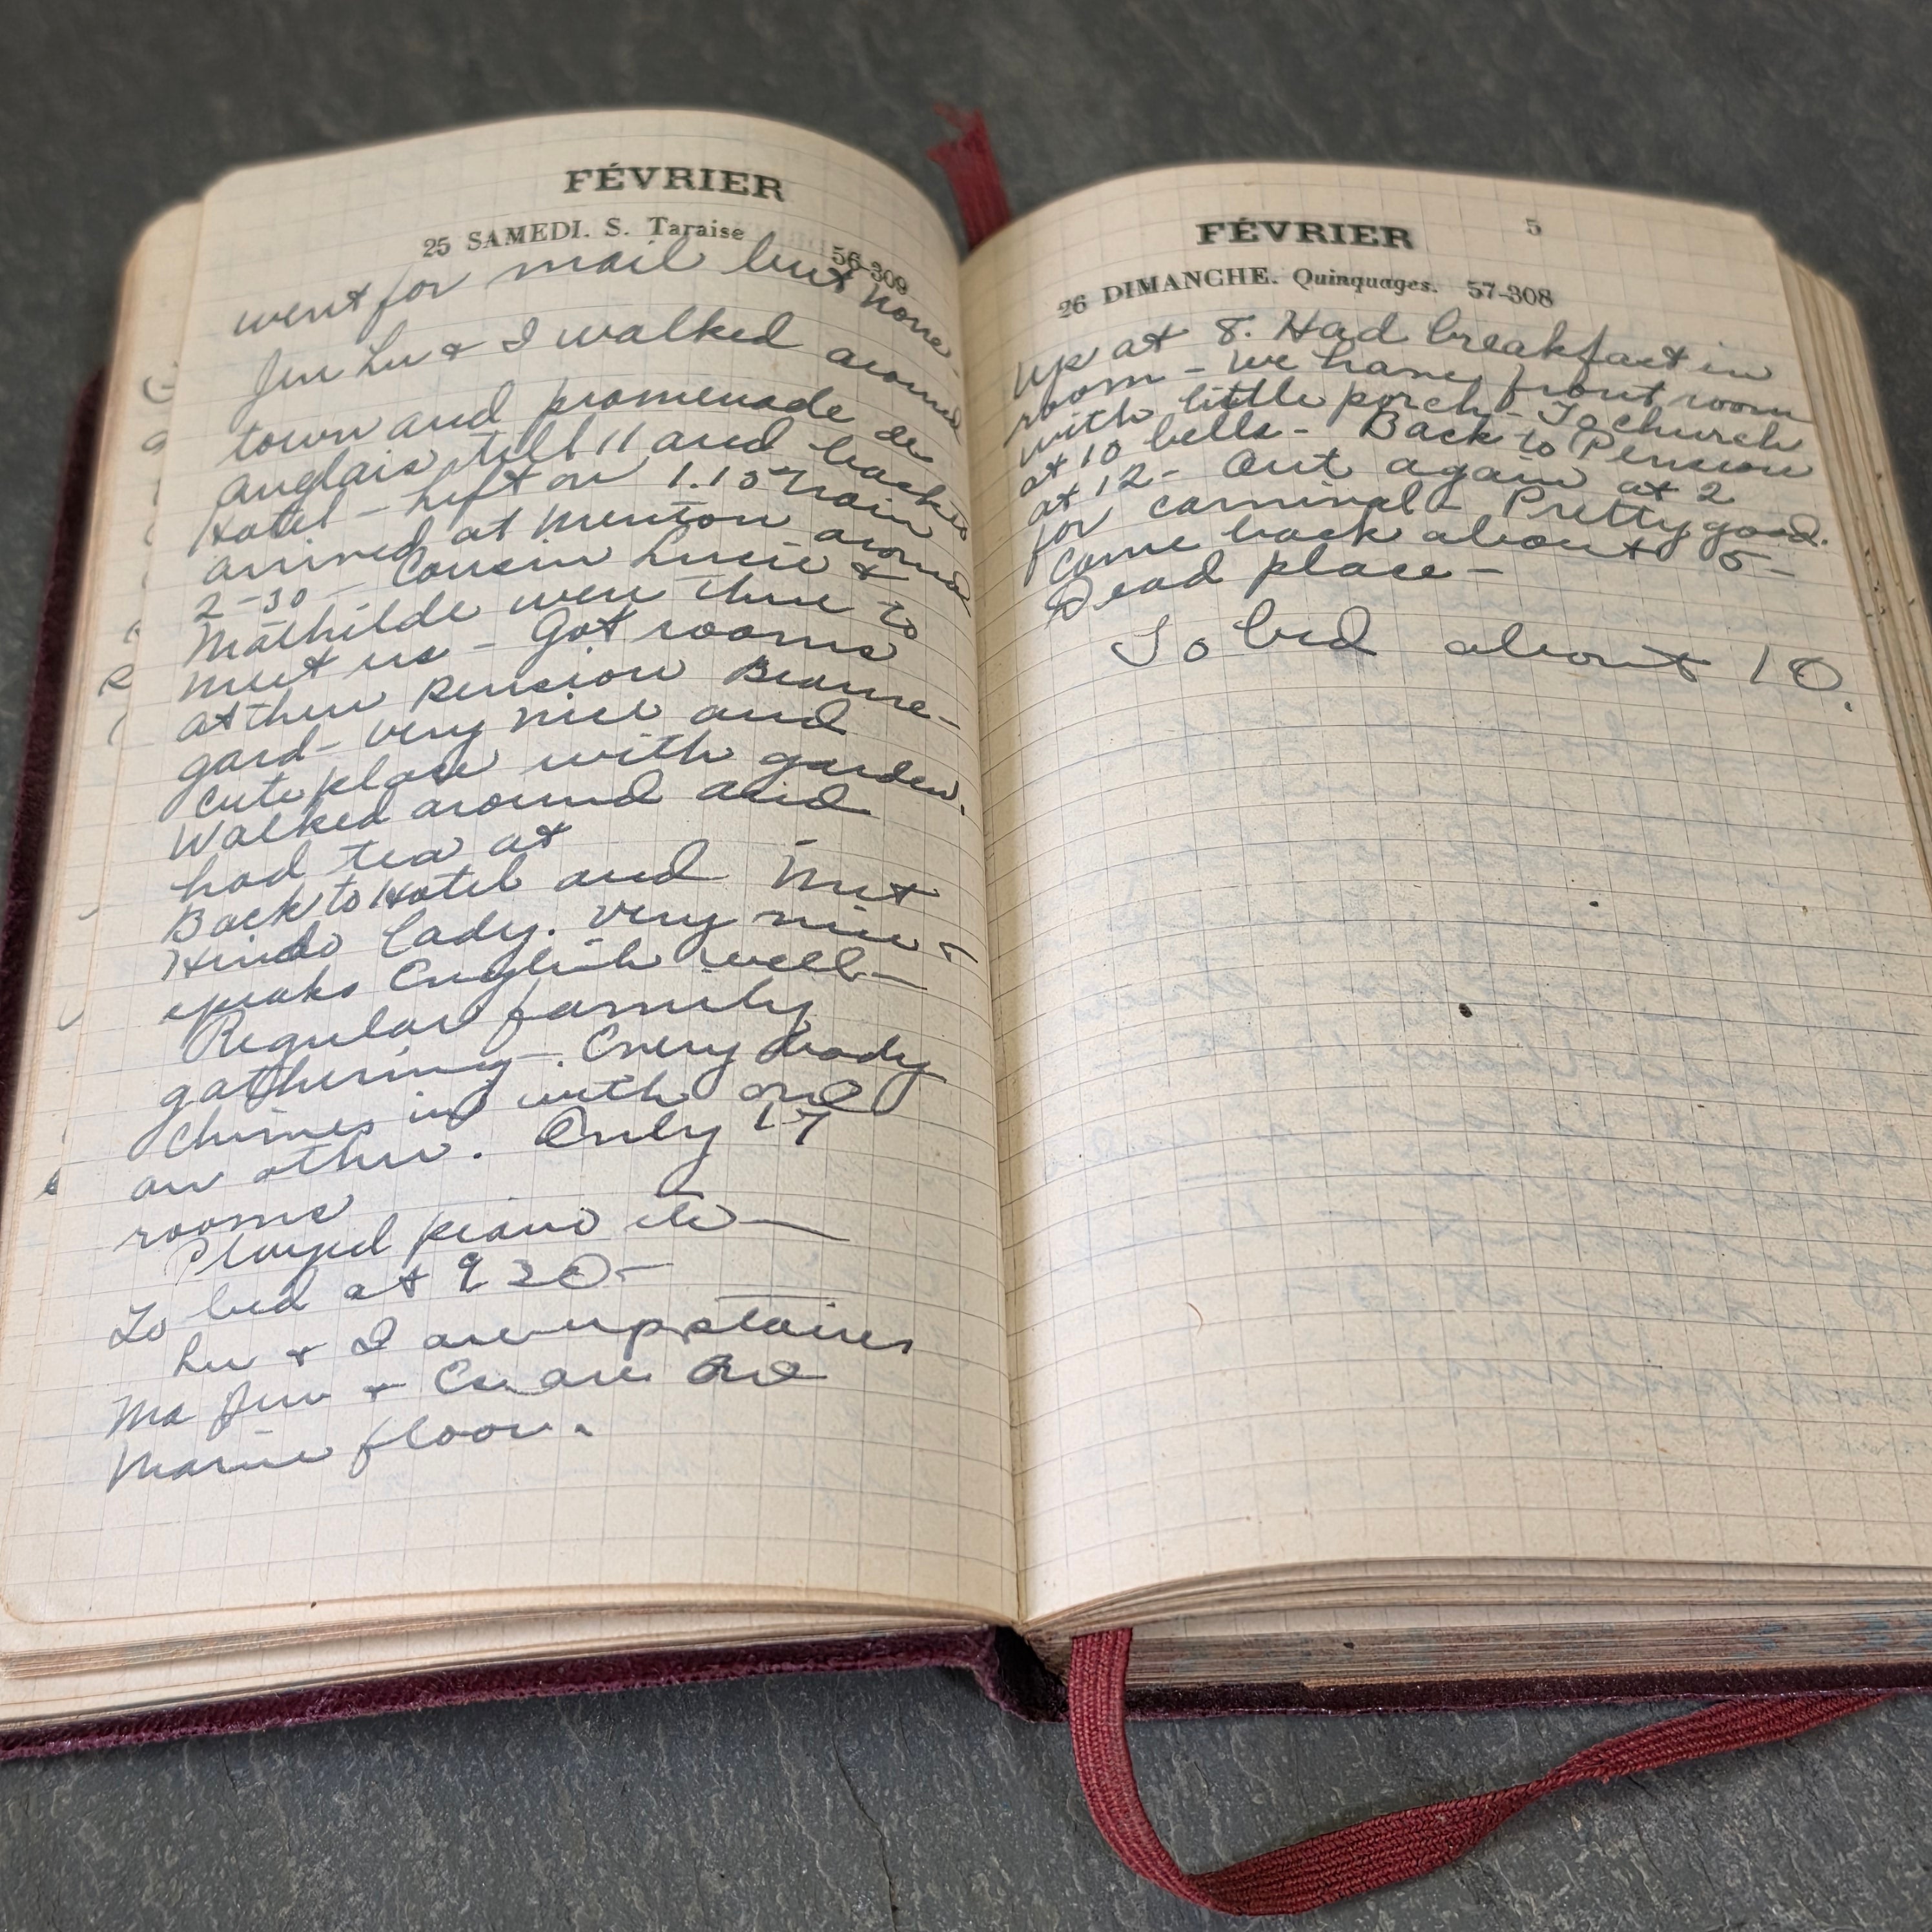 FÉVRIER
25 SAMEDI. S. Taraise 56-309
went for mail but none
Jen Lu & I walked around
town and promenade de
anglais till 11 and back to
Hotel - Left on 1.15 train
arrived at Menton around
2-30 - Cousin Lucie &
Mathilde were there to
meet us - Got rooms
at their Pension Beaure-
gard - very nice and
cute place with garden.
Walked around and
had tea at
Back to Hotel and met
Hindo lady. Very nice &
speaks English well -
Regular family
gathering - Every body
chimes in with one
an other. Only 17
rooms
Played piano etc -
To bed at 9 30 -
Lu & I are upstairs
Ma Jen & are on
Maine floor.
FÉVRIER 5
26 DIMANCHE. Quinquages. 57-308
Up at 8. Had breakfast in
room - we have front room
with little porch - To church
at 10 bells - Back to Pension
at 12 - Out again at 2
for carnival - Pretty good.
Come back about 5 -
Dead place -
To bed about 10.